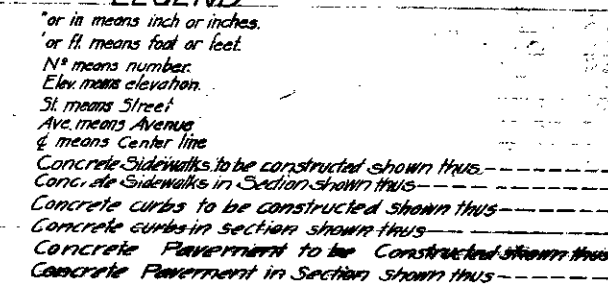 LEGEND
"or in means inch or inches.
'or ft. means foot or feet.
Nº means number.
Elev. means elevation.
St. means Street
Ave. means Avenue
℄ means Center line
Concrete Sidewalks to be constructed shown thus
Concrete Sidewalks in Section shown thus
Concrete curbs to be constructed shown thus
Concrete curbs in section shown thus
Concrete Pavement to be Constructed shown thus
Concrete Pavement in Section shown thus